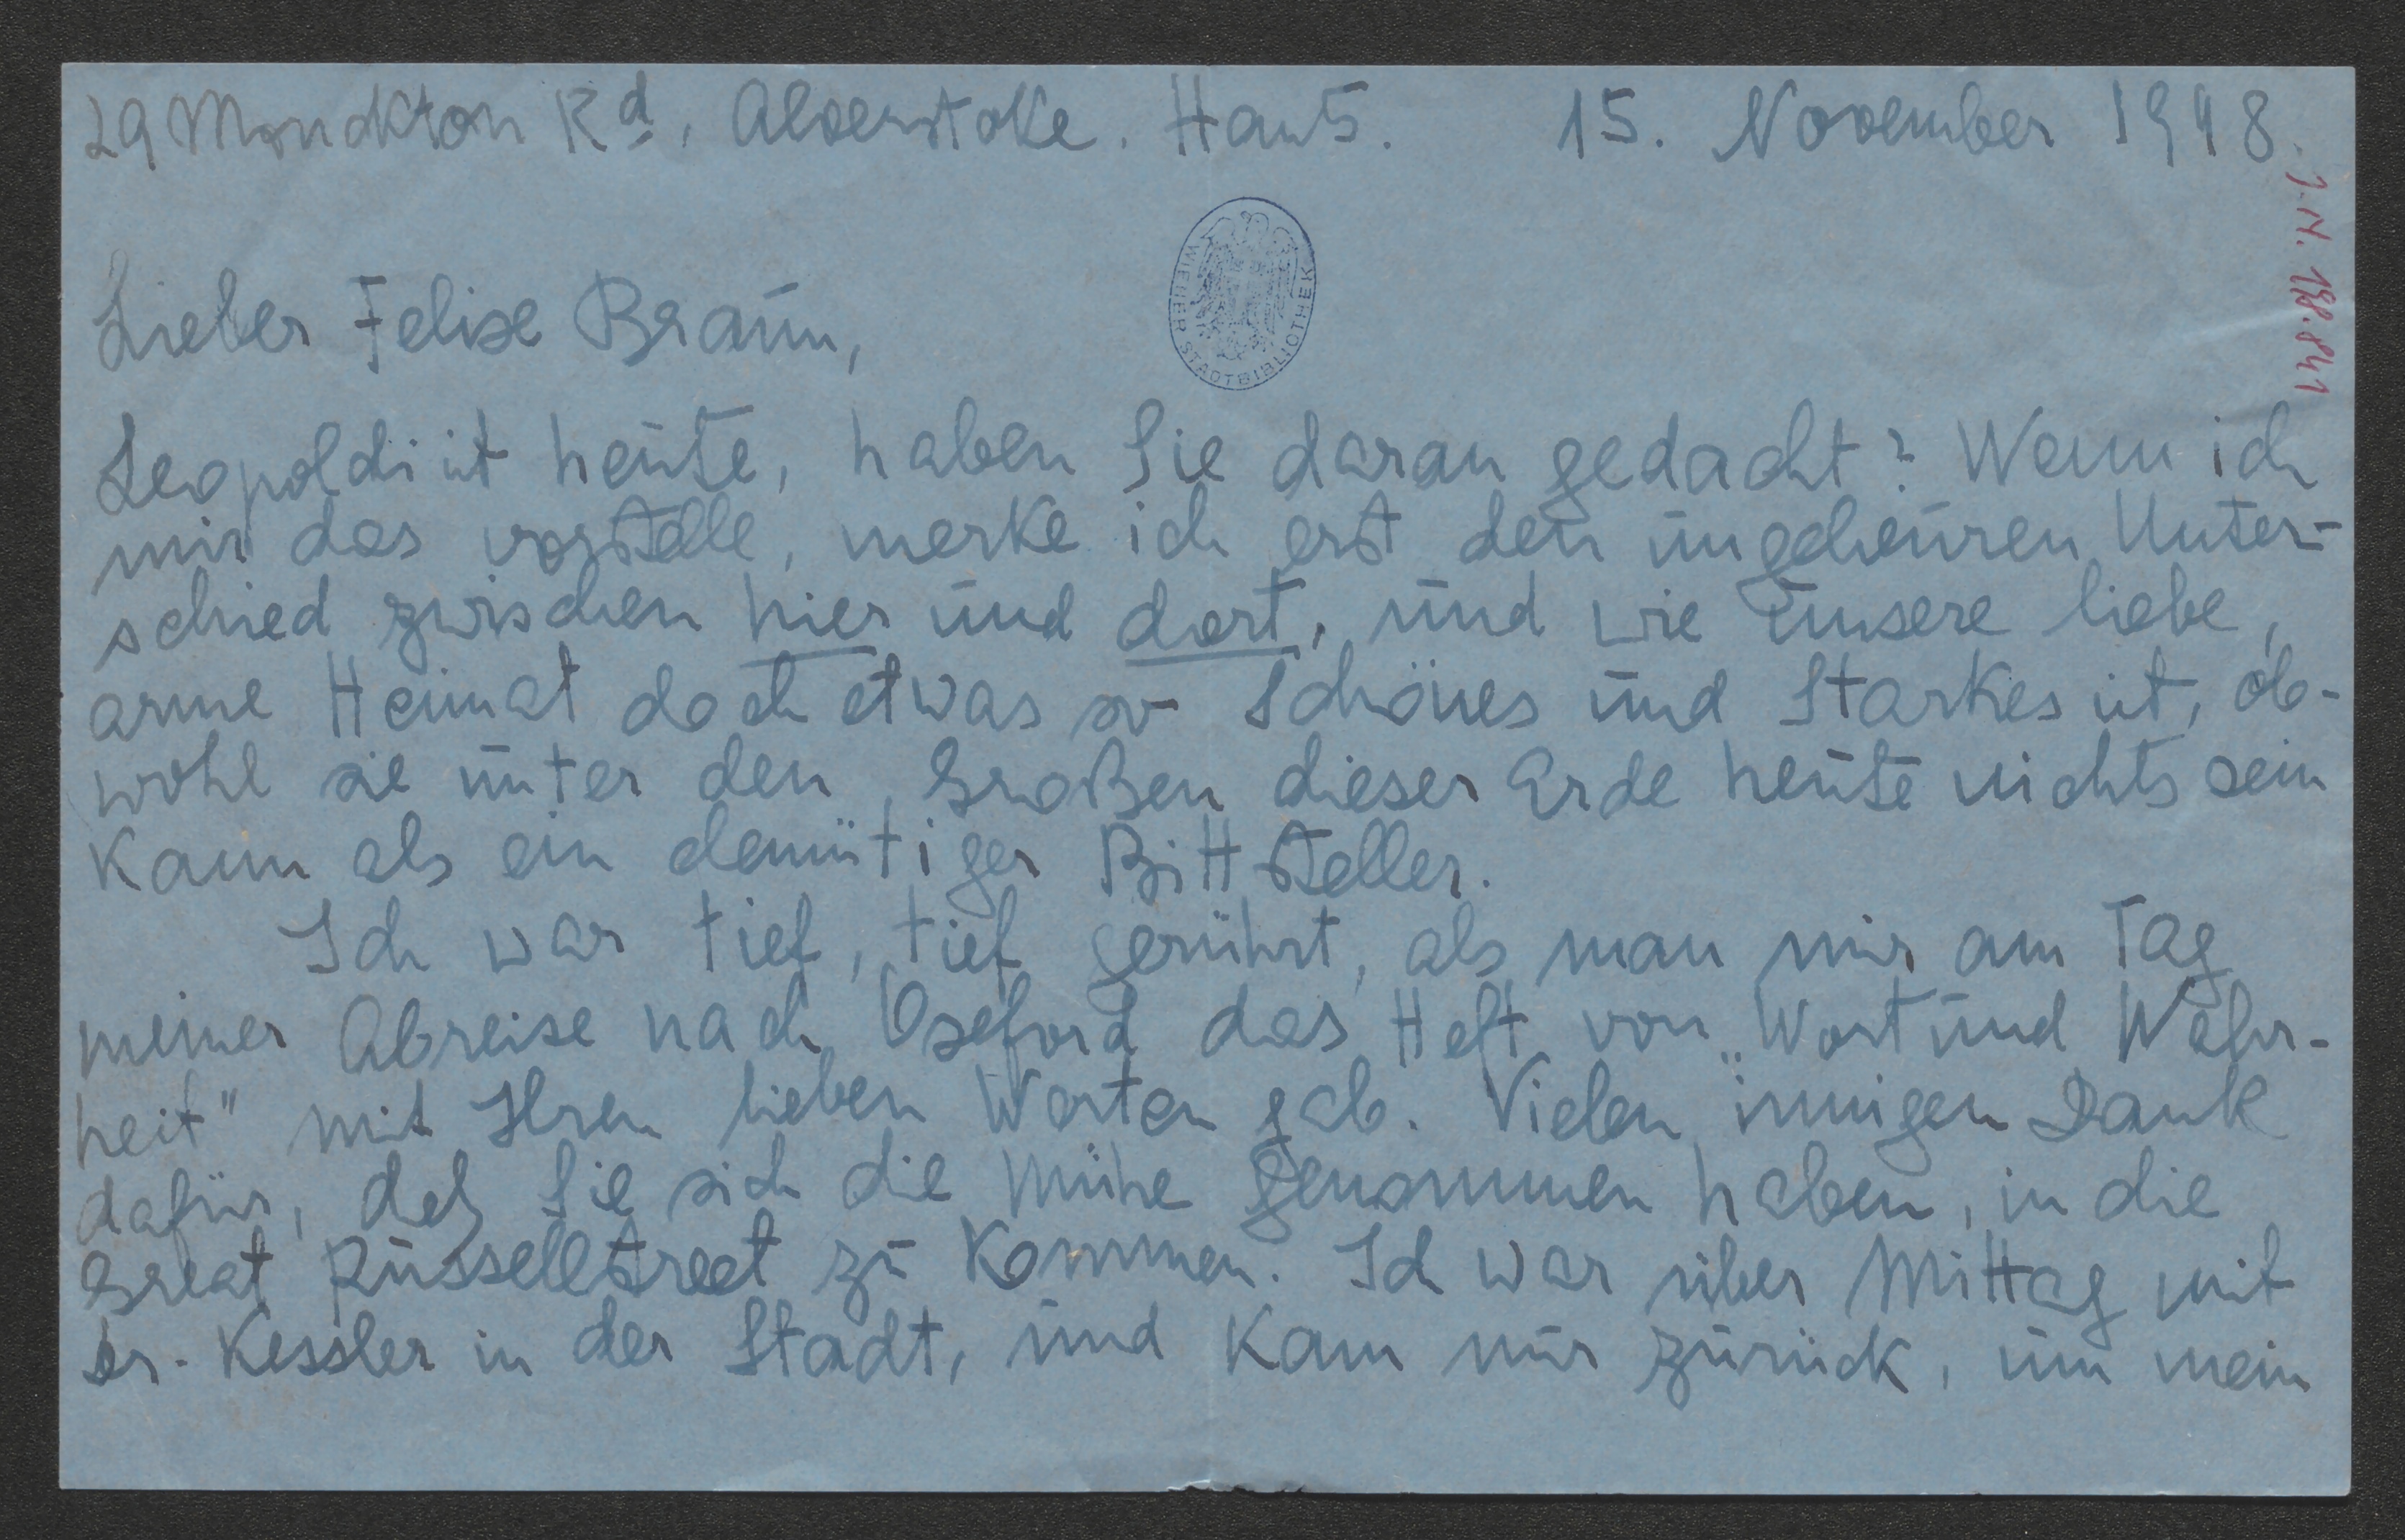 29 Monckton Rd, Alverstoke. Hants. 15. November 1948.
J.N. 198.841
WIENER STADTBIBLIOTHEK
Lieber Felix Braun,
Leopoldi ist heute, haben Sie daran gedacht? Wenn ich
mir das vorstelle, merke ich erst den ungeheuren Unter-
schied zwischen hier und dort, und wie unsere liebe,
arme Heimat doch etwas so Schönes und Starkes ist, ob-
wohl sie unter den Großen dieser Erde heute nichts sein
kann als ein demütiger Bittsteller.
Ich war tief, tief gerührt, als man mir am Tag
meiner Abreise nach Oxford das Heft von "Wort und Wahr-
heit" mit Ihren lieben Worten gab. Vielen innigen Dank
dafür, daß Sie sich die Mühe genommen haben, in die
Great Russellstreet zu kommen. Ich war über Mittag mit
Dr. Kessler in der Stadt, und kam nur zurück, um mein